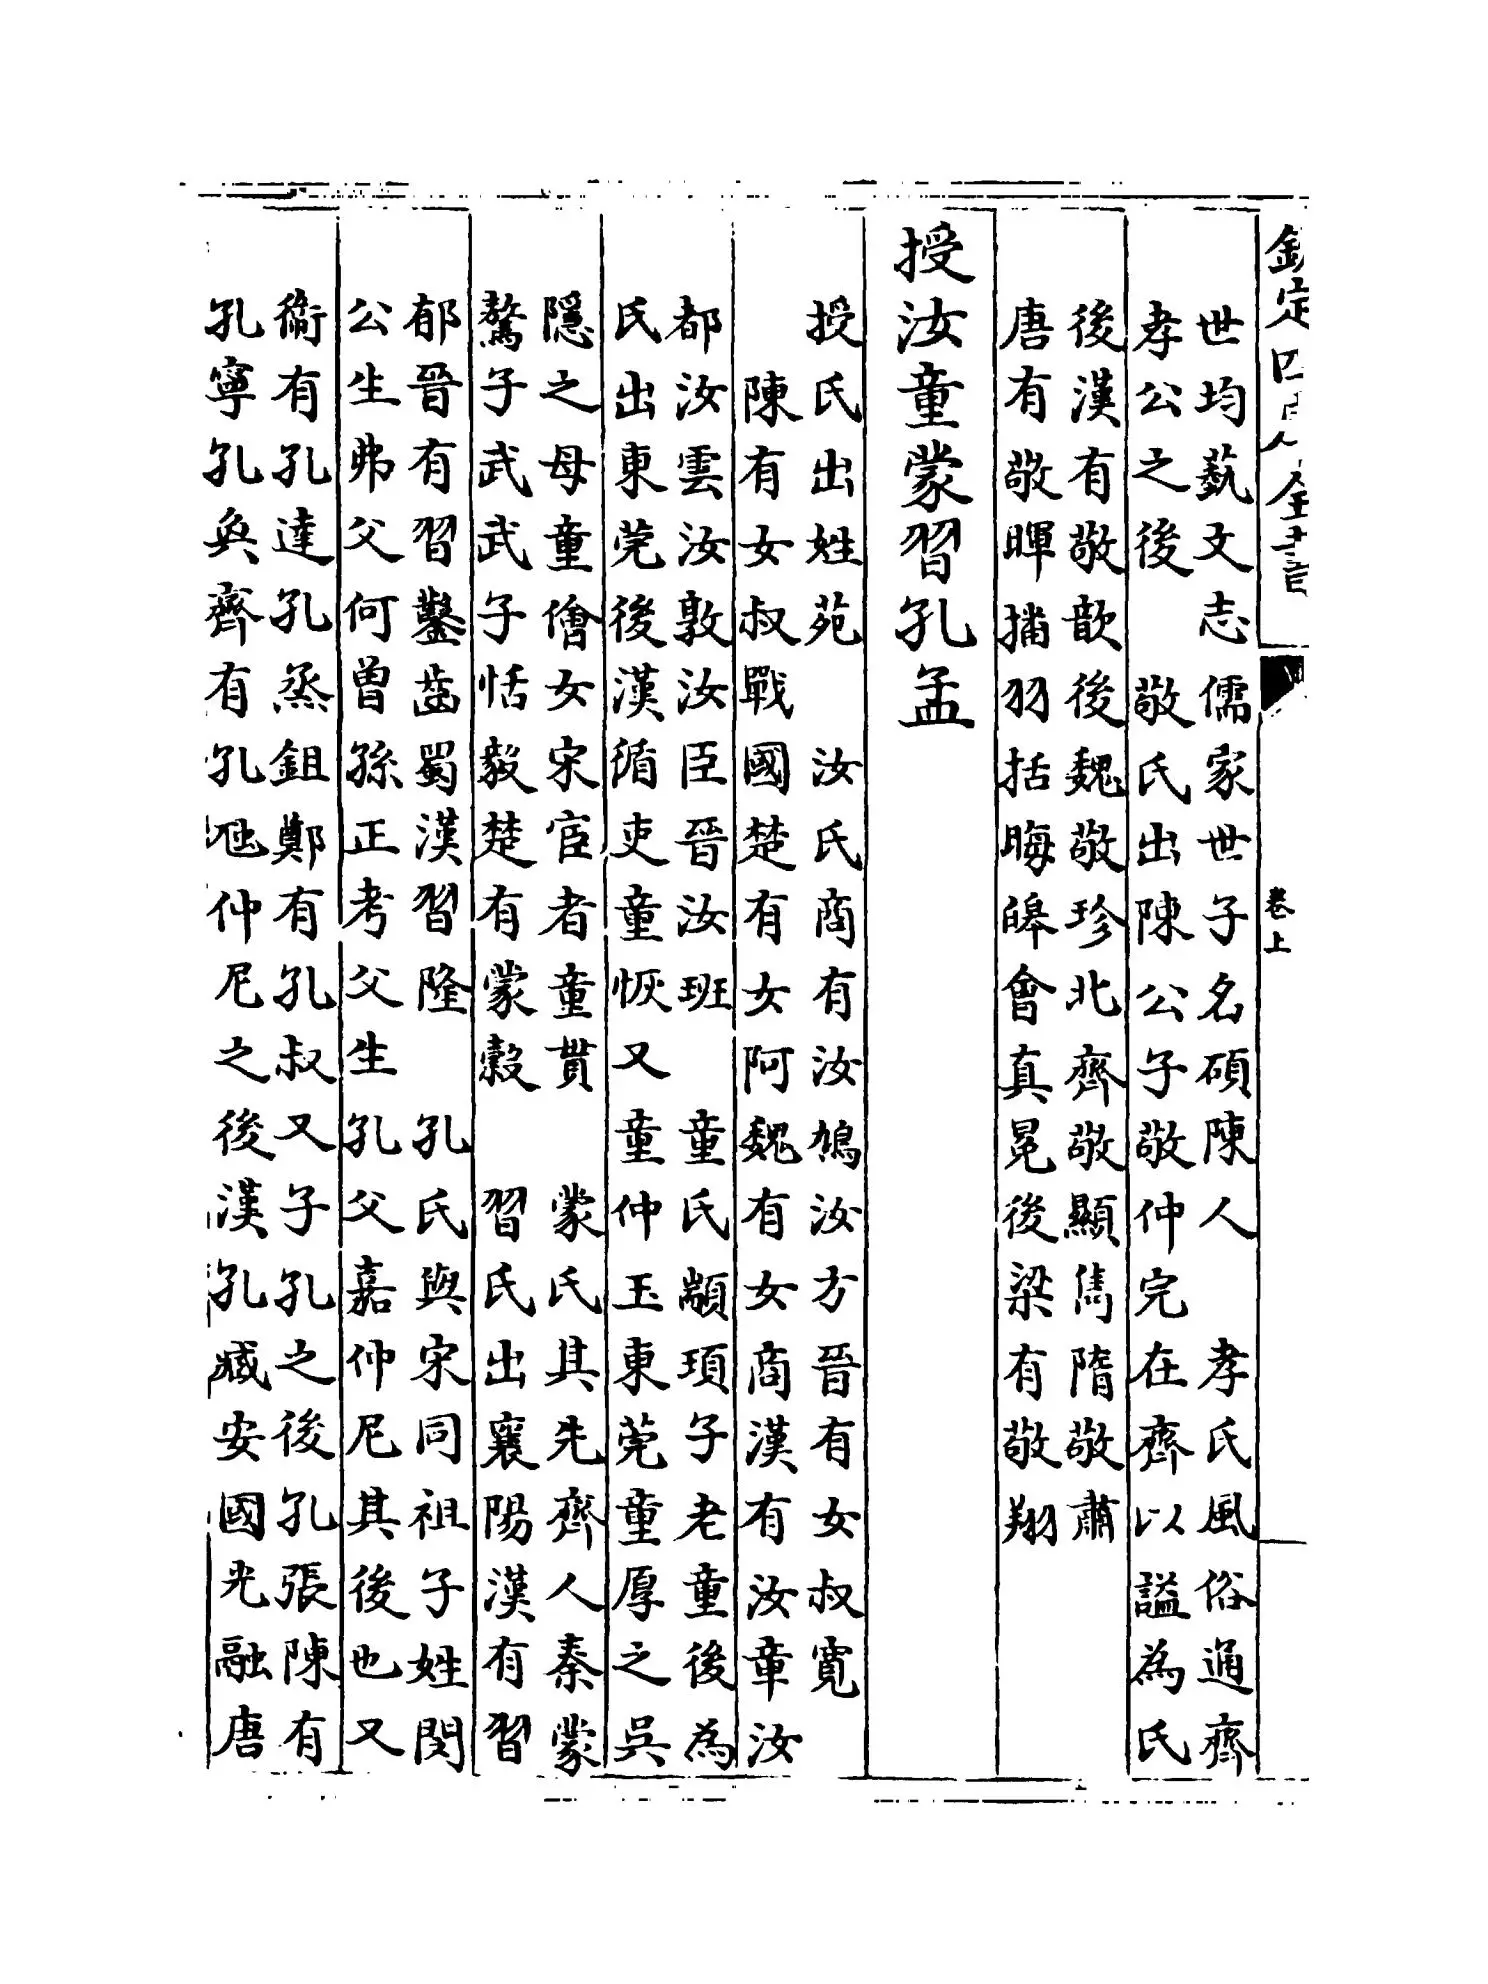 欽定四庫全書
卷上
世均藝文志　儒家世子名碩陳人　孝氏風俗通齊
孝公之後　敬氏出陳公子敬仲完在齊以謚為氏
後漢有敬歆後魏敬珍北齊敬顯儁隋敬肅
唐有敬暉播羽括晦皞會真冕後梁有敬翔
授汝童蒙習孔孟
授氏出姓苑　汝氏商有汝鳩汝方晉有女叔寬
陳有女叔戰國楚有女阿魏有女商漢有汝章汝
都汝雲汝敦汝臣晉汝班　童氏顓頊子老童後為
氏出東莞後漢循吏童恢又童仲玉東莞童厚之吳
隱之母童儈女宋宦者童貫　蒙氏其先齊人秦蒙
驁子武武子恬毅楚有蒙穀　習氏出襄陽漢有習
郁晉有習鑿齒蜀漢習隆　孔氏與宋同祖子姓閔
公生弗父何曾孫正考父生孔父嘉仲尼其後也又
衞有孔達孔烝鉏鄭有孔叔又子孔之後孔張陳有
孔寧孔奐齊有孔虺仲尼之後漢孔臧安國光融唐